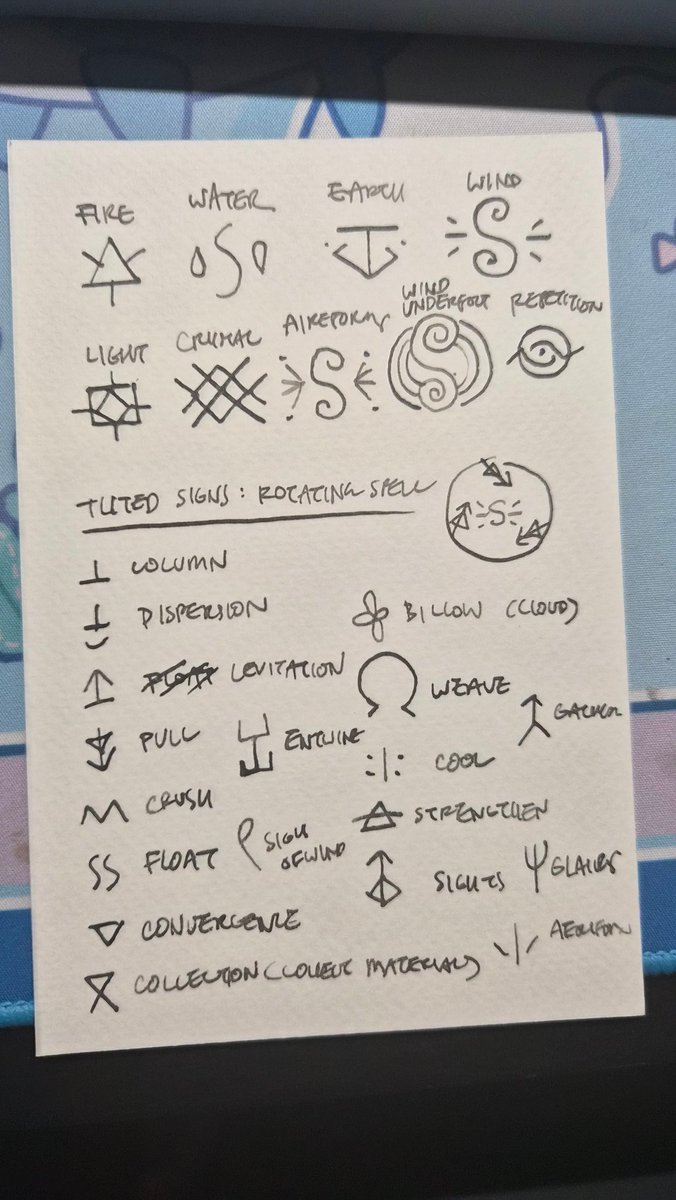 FIRE
WATER
EARTH
WIND
LIGHT
CRYSTAL
WIND
UNDERFOOT
REPETITION
TILTED SIGNS: ROTATING SPELL
COLUMN
DISPERSION
BILLOW (CLOUD)
FLOAT LEVITATION
WEAVE
PULL
ENTWINE
COOL
CRUSH
STRENGTHEN
FLOAT
SIGN
OF WIND
SIGHTS
CONVERGENCE
COLLECTION (COLLECT MATERIALS)